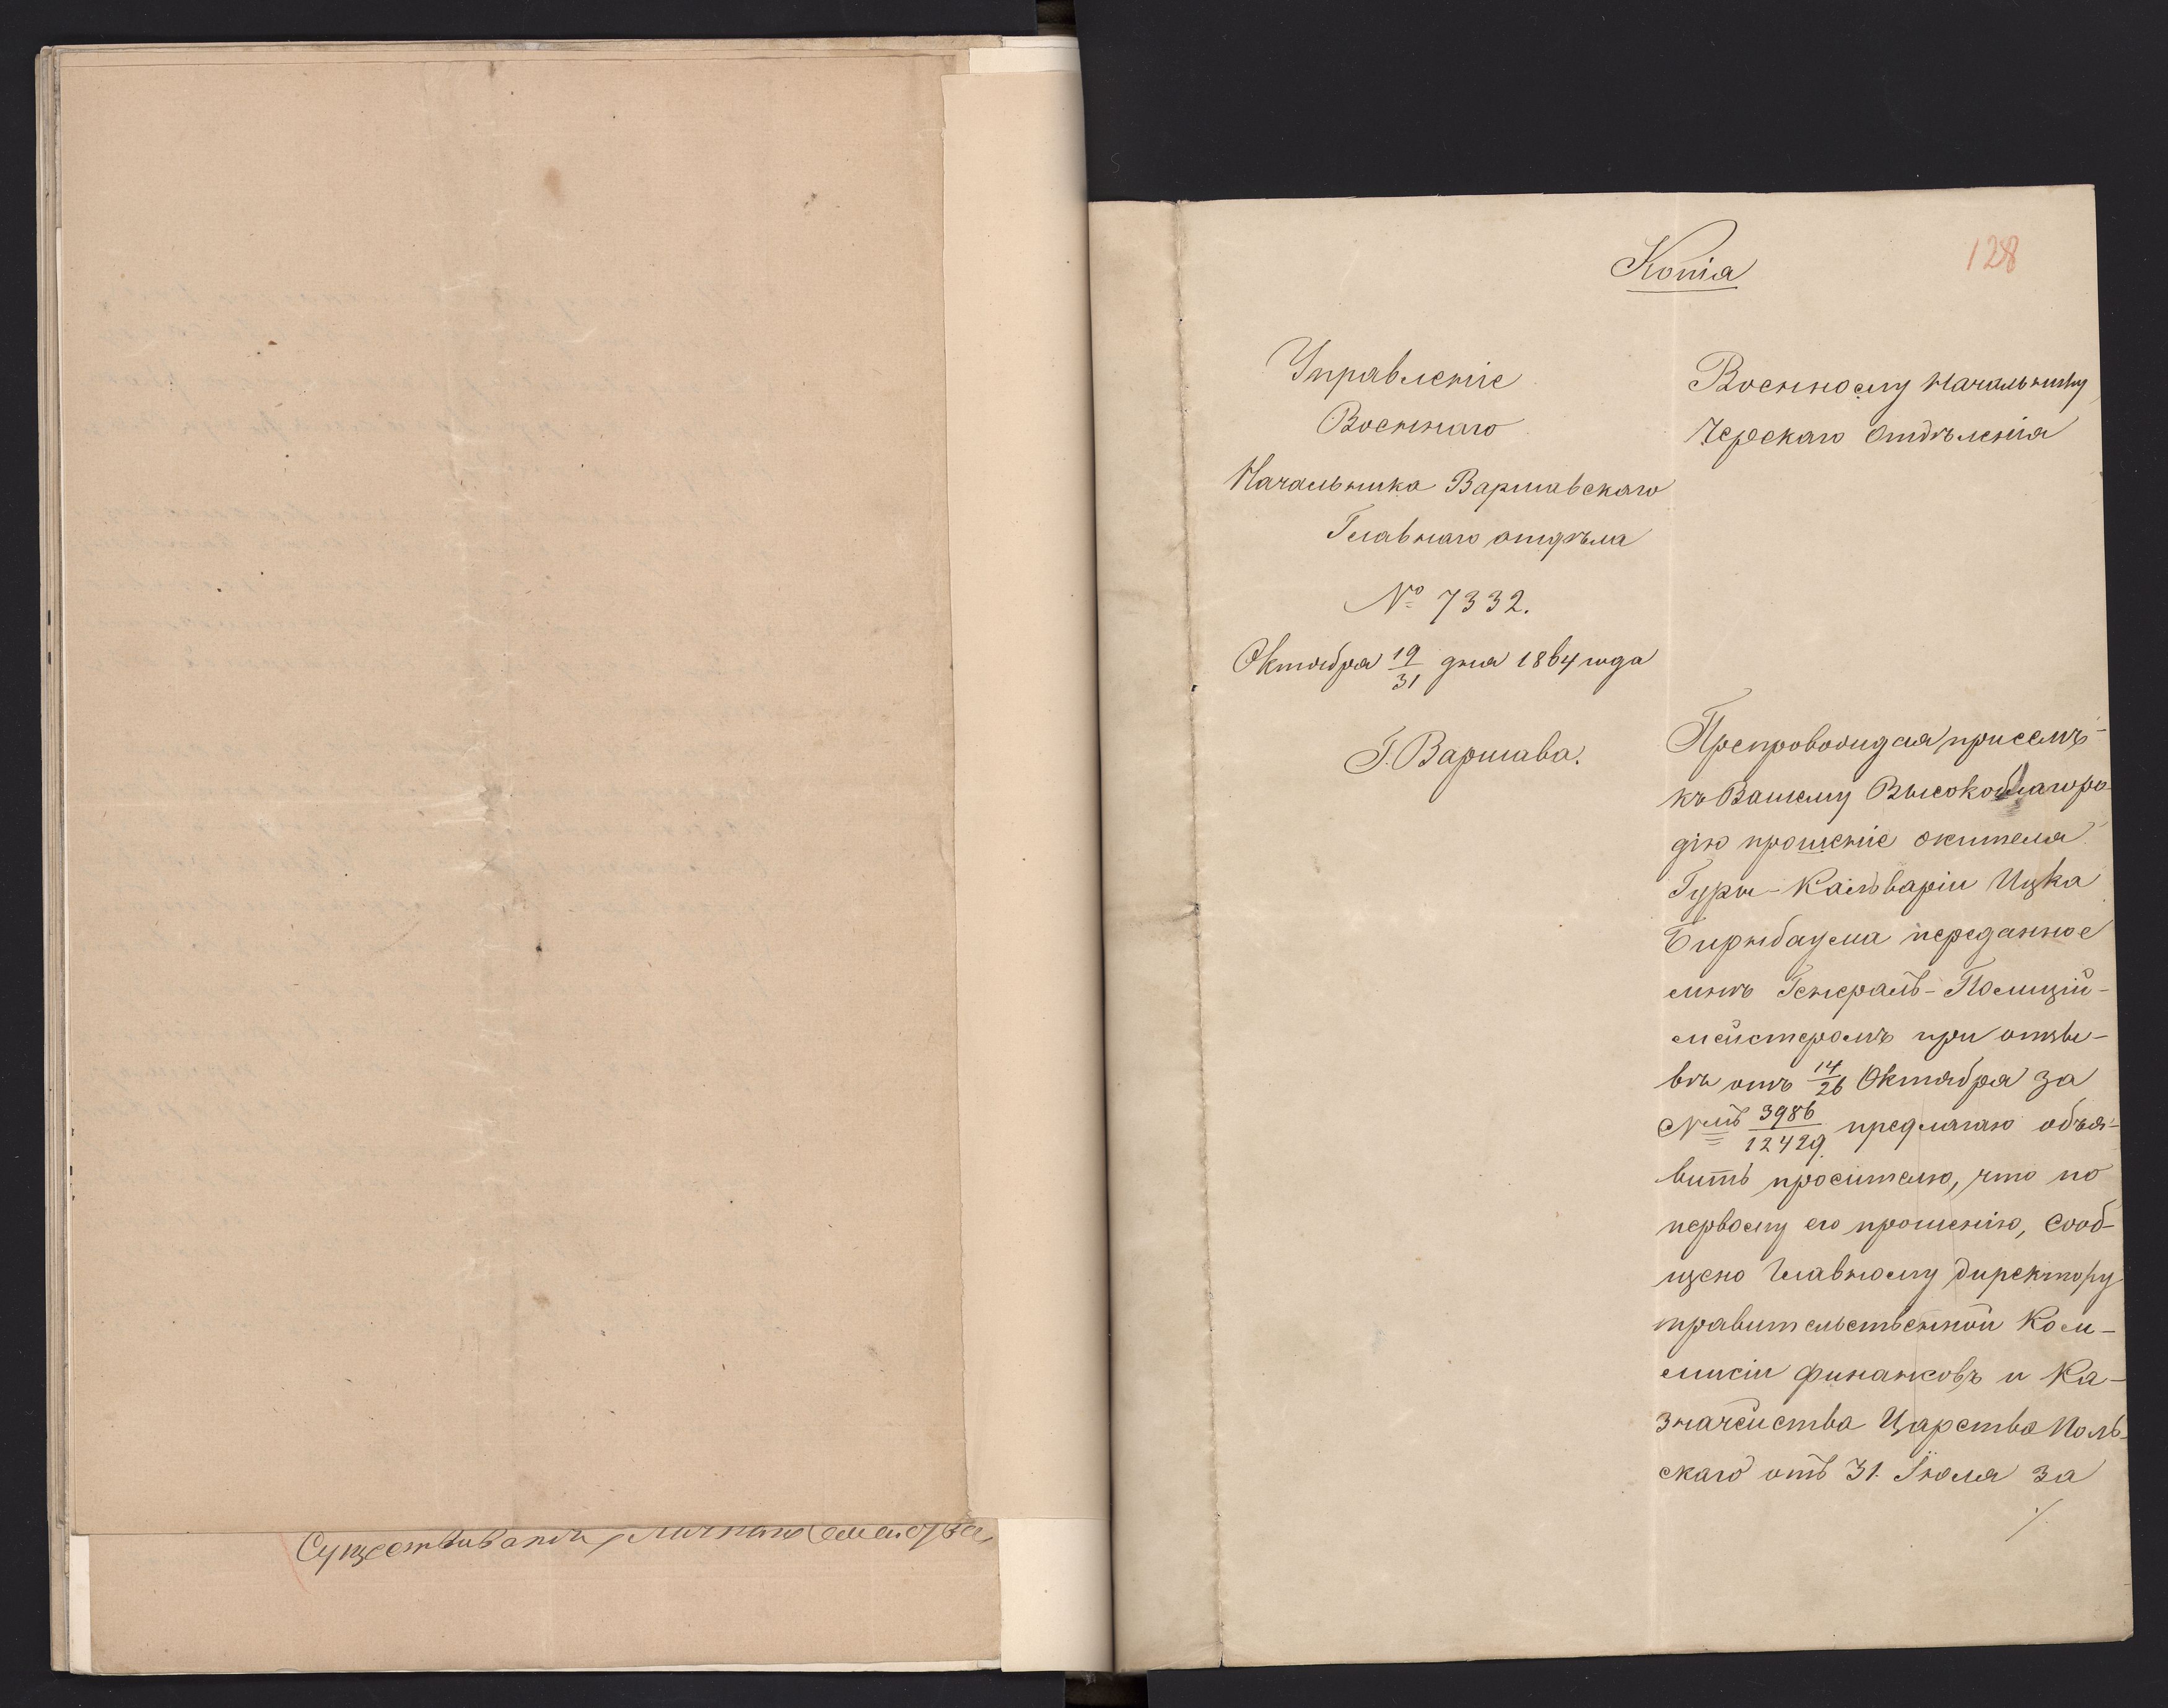 Копія
128
Управленіе
Военнаго
Начальника Варшавскаго
Главнаго отдѣла
№ 7332.
Октября 19/31 дня 1864 года
Г. Варшава.
Военному Начальнику
Черскаго Отдѣленія
Препровождая при семъ
къ Вашему Высокоблагоро-
дію прошеніе жителя
Гуры-Кальваріи Ицка
Бирнбаума переданное
мнѣ Генералъ-Полицій-
мейстеромъ при отзы-
вѣ отъ 14/26 Октября за
№мъ 3986/12429 предлагаю объя-
вить просителю, что по
первому его прошенію, сооб-
щено Главному Директору
правительственной Ком-
мисіи финансовъ и Ка-
значейства Царства Поль-
скаго отъ 31. Іюля за
/.